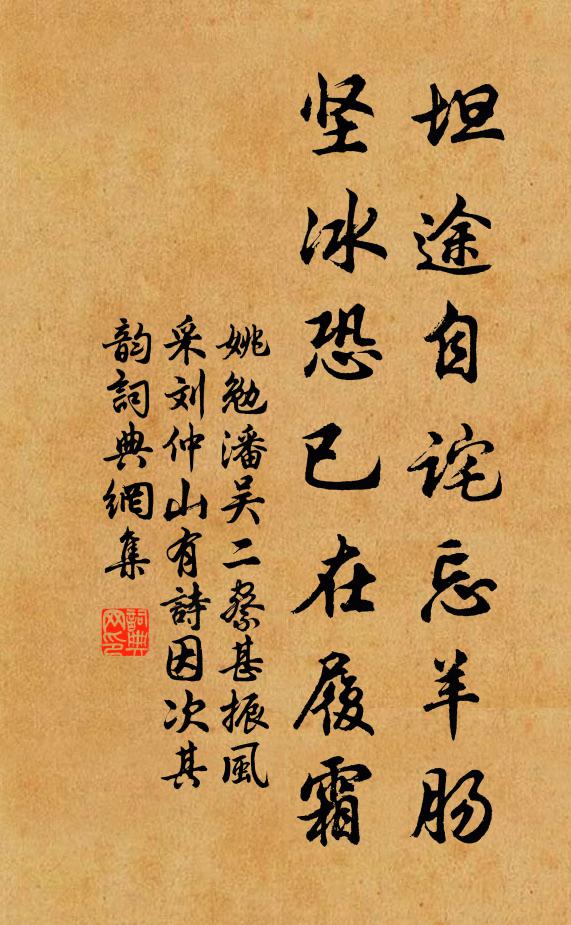 坦途自诧忘羊肠
坚冰恐已在履霜
姚勉潘吴二察甚振風
采刘仲山有詩因次其
韵詞典網集
詞典网印